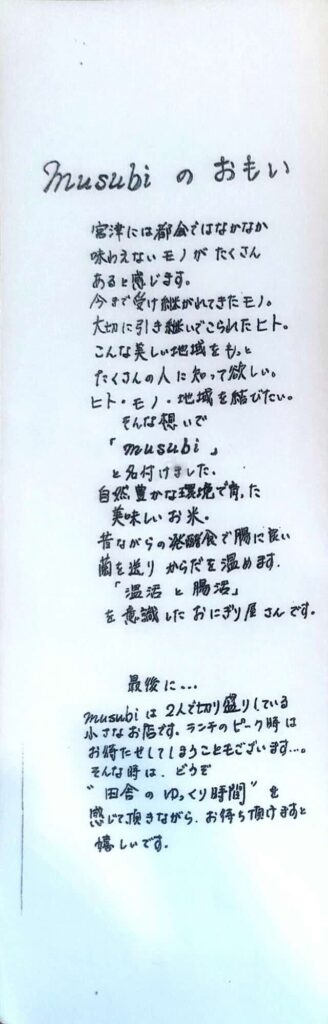 musubi の おもい
宮津には都会ではなかなか
味わえないモノが たくさん
あると感じます。
今まで受け継がれてきたモノ。
大切に引き継いでこられたヒト。
こんな美しい地域をもっと
たくさんの人に知って欲しい。
ヒト・モノ・地域を結びたい。
そんな想いで
「musubi」
と名付けました。
自然豊かな環境で育った
美味しいお米。
昔ながらの発酵食で腸に良い
菌を送り からだを温めます.
「温活 と 腸活」
を意識した おにぎり屋さんです。
最後に...
musubi は 2人で切り盛りしている
小さなお店です。ランチのピーク時は
お待たせしてしまうこともございます...。
そんな時は、どうぞ
"田舎の ゆっくり時間" を
感じて頂きながら、お待ち頂けますと
嬉しいです。